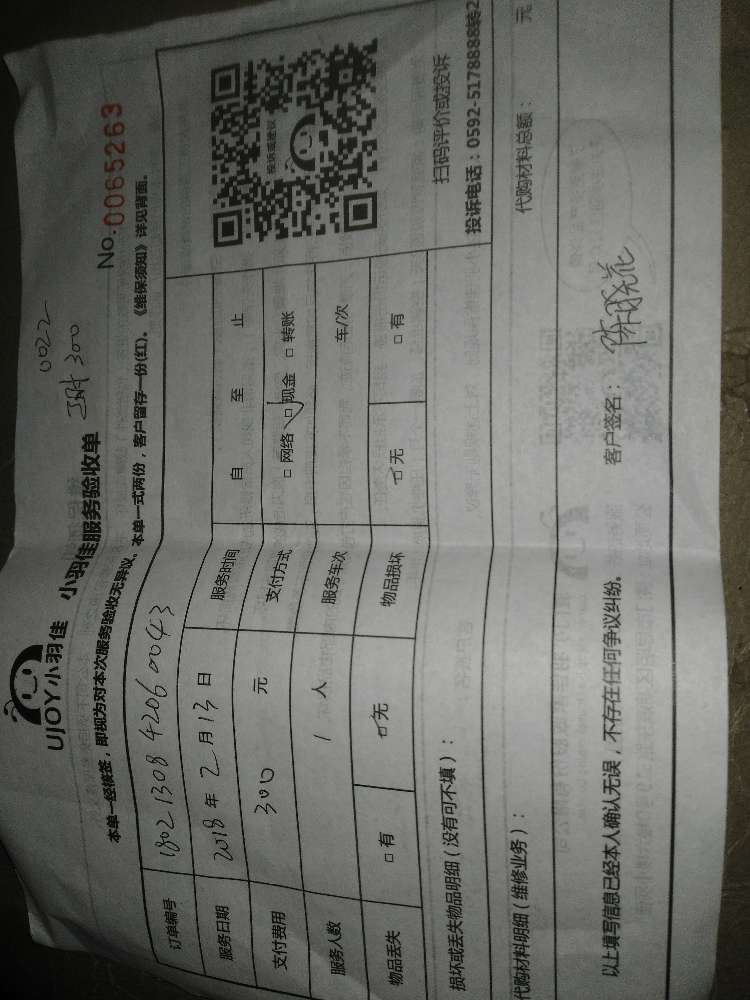 0022
UJOY小羽佳 小羽佳服务验收单 300
No.0065263
本单一经接签，即视为对本次服务验收无异议。本单一式两份，客户留存一份(红)。《维保须知》详见背面。
订单编号 18021308420600043
服务日期 2018年2月13日 服务时间 自 至 止
支付费用 300 元 支付方式 □网络 ☑现金 □转账
服务人数 1 人 服务车次 车/次
物品丢失 □有 ☑无 物品损坏 ☑无 □有
投诉或建议
扫码评价或投诉
投诉电话：0592-5178888转2
损坏或丢失物品明细（没有可不填）：
代购材料明细（维修业务）： 代购材料总额： 元
以上填写信息已经本人确认无误，不存在任何争议纠纷。 客户签名：